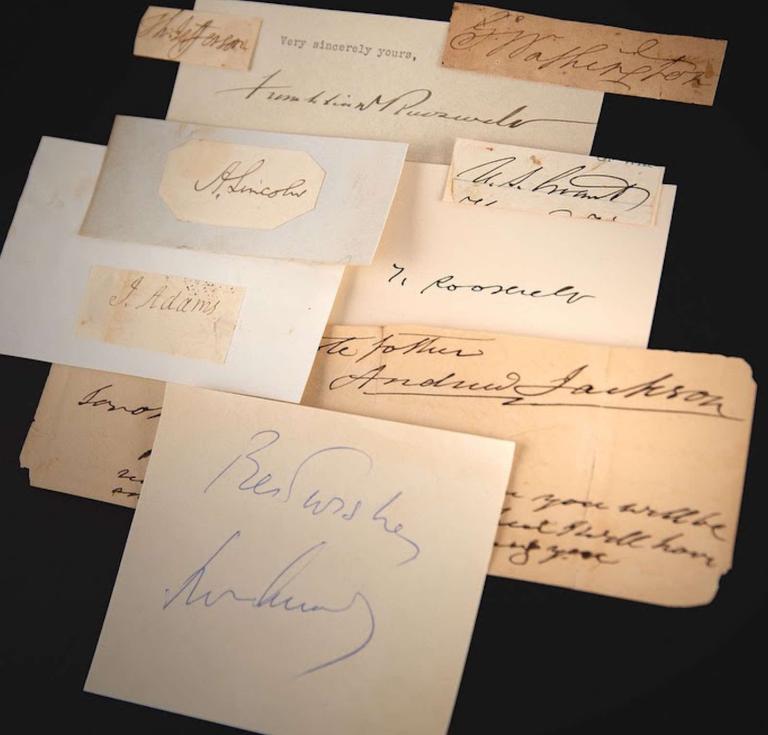 Th. Jefferson
G. Washington
Very sincerely yours,
Franklin D Roosevelt
A. Lincoln
U. S. Grant
T. Roosevelt
J. Adams
father
Andrew Jackson
you will be
I will have
you
Best wishes